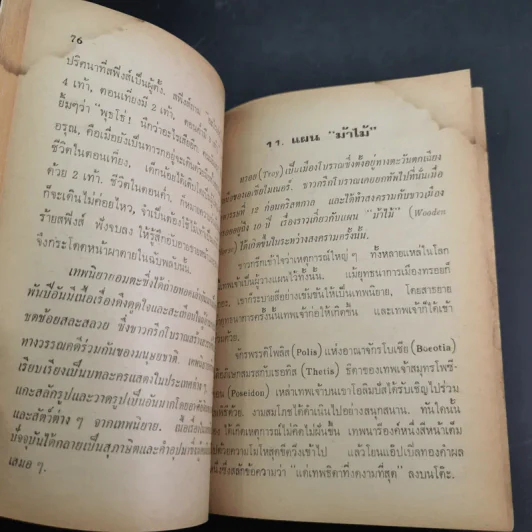 76
ปริศนาที่สฟิงส์เป็นผู้ตั้ง. สฟิงส์ถาม
4 เท้า, ตอนเที่ยงมี 2 เท้า, ตอนค่ำมี
ยิ้มๆว่า "พุธโธ่! นึกว่าอะไรเสียอีก
อรุณ, คือเมื่อยังเป็นทารกอยู่จะเดินด้วยมือทั้ง
ชีวิตในตอนเที่ยง, เด็กน้อยได้เติบโต
ด้วย 2 เท้า. ชีวิตในตอนค่ำ,
ก็จะเดินไม่ค่อยไหว, จำเป็นต้องใช้ไม้เท้า
ร้ายสฟิงส์ ฟังจบลง ให้รู้สึกอับอายขายหน้า
จึงกระโดดหน้าผาตายในฉับพลันนั้น.
เทพนิยายอมตะซึ่งได้ถ่ายทอดกันมา
พันปีอันมีเนื้อเรื่องดึงดูดใจและสะเทือนใจ
ชดช้อยสละสลวย ซึ่งชาวกรีกโบราณสร้าง
ทางวรรณคดีร่วมกันของมนุษยชาติ. เทพนิยาย
เรียบเรียงเป็นบทละครแสดงในประเทศต่าง ๆ
แกะสลักรูปและวาดรูปเป็นอันมากโดยอาศัย
และสัตว์ต่าง ๆ จากเทพนิยาย.
ปัจจุบันได้กลายเป็นสุภาษิตและคำอุปมา
เสมอ ๆ.
11. แผน "ม้าไม้"
ทรอย (Troy) เป็นเมืองโบราณซึ่งตั้งอยู่ทางตะวันตกเฉียง
ของเอเซียไมเนอร์. ชาวกรีกโบราณเคยยกทัพไปที่นั่นเมื่อ
ที่ 12 ก่อนคริสตกาล และได้ทำสงครามกับชาวเมือง
ถึง 10 ปี เรื่องราวเกี่ยวกับแผน "ม้าไม้" (Wooden
ได้เกิดขึ้นในระหว่างสงครามครั้งนั้น.
ชาวกรีกเข้าใจว่าเหตุการณ์ใหญ่ ๆ ทั้งหลายแหล่ในโลก
เทพเจ้าเป็นผู้วางแผนไว้ทั้งนั้น. แม้ยุทธนาการเมืองทรอยก็
เขาก็ระบายสีอย่างเข้มข้นให้เป็นเทพนิยาย, โดยสาธยาย
ครั้งนั้นเทพเจ้าก่อให้เกิดขึ้น และเทพเจ้าก็ได้เข้า
ด้วย.
จักรพรรดิโพลิส (Polis) แห่งอาณาจักรโบเชีย (Boeotia)
อภิเษกสมรสกับเธทิส (Thetis) ธิดาของเทพเจ้าสมุทรโพซี-
(Poseidon) เหล่าเทพเจ้าบนเขาโอลิมปัสได้รับเชิญไปร่วม
ด้วย. งานสโมสรได้ดำเนินไปอย่างสนุกสนาน. ทันใดนั้น
ได้เกิดเหตุการณ์ไม่คิดไม่ฝันขึ้น เทพนารีองค์หนึ่งสีหน้าเต็ม
ไปด้วยความโมโหสุดขีดวิ่งเข้าไป แล้วโยนแอ๊ปเปิ้ลทองคำผล
หนึ่งซึ่งสลักข้อความว่า "แด่เทพธิดาที่งดงามที่สุด" ลงบนโต๊ะ.